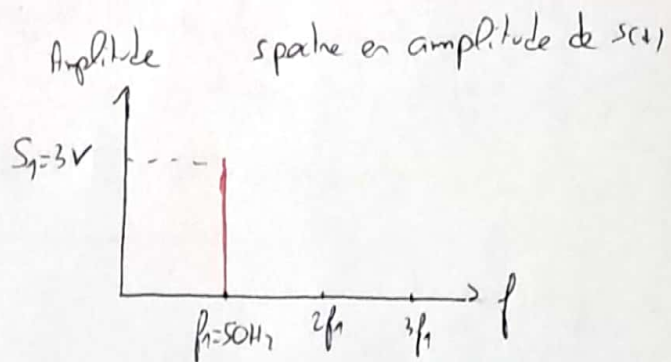 Amplitude
spectre en amplitude de s(t)
S₁=3V
f₁=50Hz 2f₁ 3f₁
f